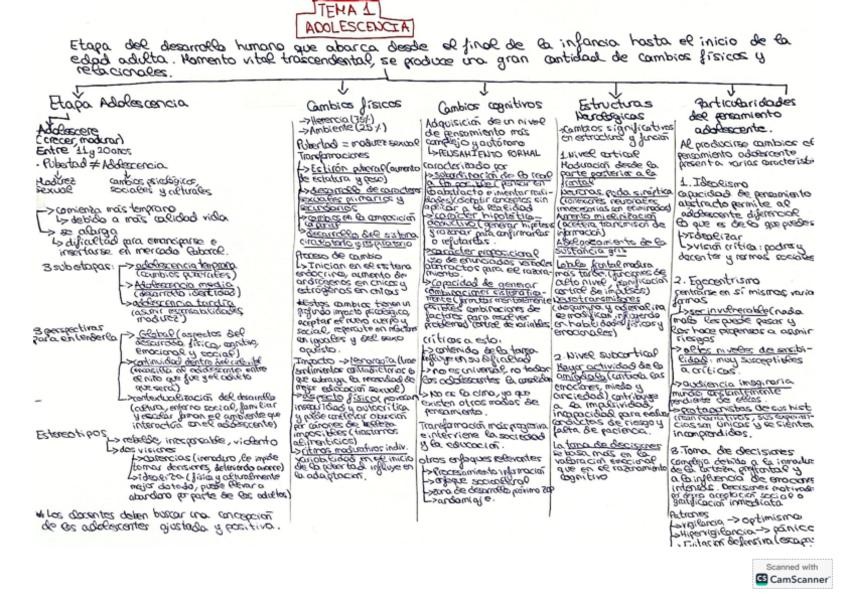 TEMA 1
ADOLESCENCIA
Etapa del desarrollo humano que abarca desde el final de la infancia hasta el inicio de la
edad adulta. Momento vital trascendental, se produce una gran cantidad de cambios físicos y
relacionales.
Etapa Adolescencia
Adolescere
(crecer, madurar)
Entre 11 y 20 años
· Pubertad ≠ Adolescencia
Madurez sexual
cambios psicológicos, sociales y culturales
→ comienza más temprano
↳ debido a más calidad vida
→ se alarga
↳ dificultad para emanciparse e
insertarse en el mercado laboral.
3 subetapas:
→ adolescencia temprana
(cambios puberales)
→ Adolescencia media
(desarrollo identidad)
→ adolescencia tardía
(asumir responsabilidades
madurez)
3 perspectivas
para entenderla
→ Global (aspectos del
desarrollo física, cognitiva,
emocional y social)
el niño que fue y el adulto que
será)
→ contextualización del desarrollo
(cultura, entorno social, familiar
y escolar forman el ambiente que
interactúa con el adolescente)
Estereotipos
↳ rebelde, irresponsable, violento
↳ dos visiones
tomar decisiones,
→ idealiza (física y culturalmente
mejor dotado, puede llevar a
abandono por parte de los adultos)
* Los docentes deben buscar una concepción
de los adolescentes ajustada y positiva.
Cambios físicos
→ Herencia (75%)
→ Ambiente (25%)
Pubertad = madurez sexual
Transformaciones
→ Estirón puberal (aumento
de estatura y peso)
→ desarrollo de caracteres
sexuales primarios y
secundarios
→ cambios en la composición
→ desarrollo del sistema
circulatorio y respiratorio
Proceso de cambio
→ Inician en el sistema
endocrino, aumento de
andrógenos en chicos y
estrógenos en chicas
Estos cambios tienen un
profundo impacto psicológico,
aceptar el nuevo cuerpo y
social,
en iguales y del sexo
opuesto.
mejor educación sexual)
→ Aspecto físico
inseguridad y autocrítica
por cánones de belleza
impuestos (trastornos
alimenticios)
→ ritmos madurativos indiv.
variabilidad en el inicio
de la pubertad influye en
la adaptación.
Cambios cognitivos
Adquisición de un nivel
de pensamiento más
complejo y autónomo
↳ PENSAMIENTO FORMAL
caracterizado por
→ carácter hipotético-
deductivo (generar hipótesis
y razonar para confirmarlas
o refutarlas.
→ carácter proposicional
uso de enunciados verbales
abstractos para el razona-
miento.
→ Capacidad de generar
posibles combinaciones de
factores para resolver
problemas, control de variables)
críticas a esto:
→ contenido de la tarea
influye en su dificultad
→ no es universal, no todos
los adolescentes la consolidan
→ No es la cima, ya que
existen otros modos de
pensamiento.
Transformación más progresiva
e interviene la sociedad
y la educación.
otros enfoques relevantes
→ Procesamiento información
→ enfoque sociocultural
→ zona de desarrollo próximo ZDP
→ andamiaje.
Estructuras
Neurológicas
→ Cambios significativos
en estructura y función
1. Nivel cortical
Maduración desde la
parte posterior a la
frontal
Neuronas poda sináptica
(conexiones neuronales
innecesarias son eliminadas)
Aumento mielinización
(acelera transmisión de
información)
Adelgazamiento de la
sustancia gris
Lóbulo frontal madura
más tarde (funciones de
alto nivel, planificación
control de impulsos)
Neurotransmisores
(dopamina y adrenalina
se modifican, influyendo
en habilidades físicas y
emocionales)
2. Nivel subcortical
Mayor actividad de la
amígdala (controla las
emociones, miedo y
ansiedad) contribuye
a la impulsividad,
incapacidad para evaluar
conductas de riesgo y
falta de paciencia.
La toma de decisiones
se basa más en la
valoración emocional
que en el razonamiento
cognitivo
Particularidades
del pensamiento
adolescente.
Al producirse cambios el
pensamiento adolescente
presenta varias características
1. Idealismo
capacidad de pensamiento
abstracto permite al
adolescente diferenciar lo
que es de lo que puede ser
↳ Idealizar
↳ visión crítica: padres y
docentes y normas sociales
2. Egocentrismo
centrarse en sí mismos, varias
formas
→ ser invulnerable (nada
malo les puede pasar y
los hace propensos a asumir
riesgos
→ altos niveles de sensibi-
lidad: muy susceptibles
a críticas.
→ audiencia imaginaria
mundo constantemente
pendiente de ellos.
→ protagonistas de sus hist.
cias son únicas y se sienten
incomprendidos.
3. Toma de decisiones
compleja debido a la inmadurez
de la corteza prefrontal y
a la influencia de emociones
intensas. Decisiones motivadas
por aceptación social o
gratificación inmediata
Patrones
→ vigilancia → optimismo
→ Hipervigilancia → pánico
Scanned with
CS CamScanner